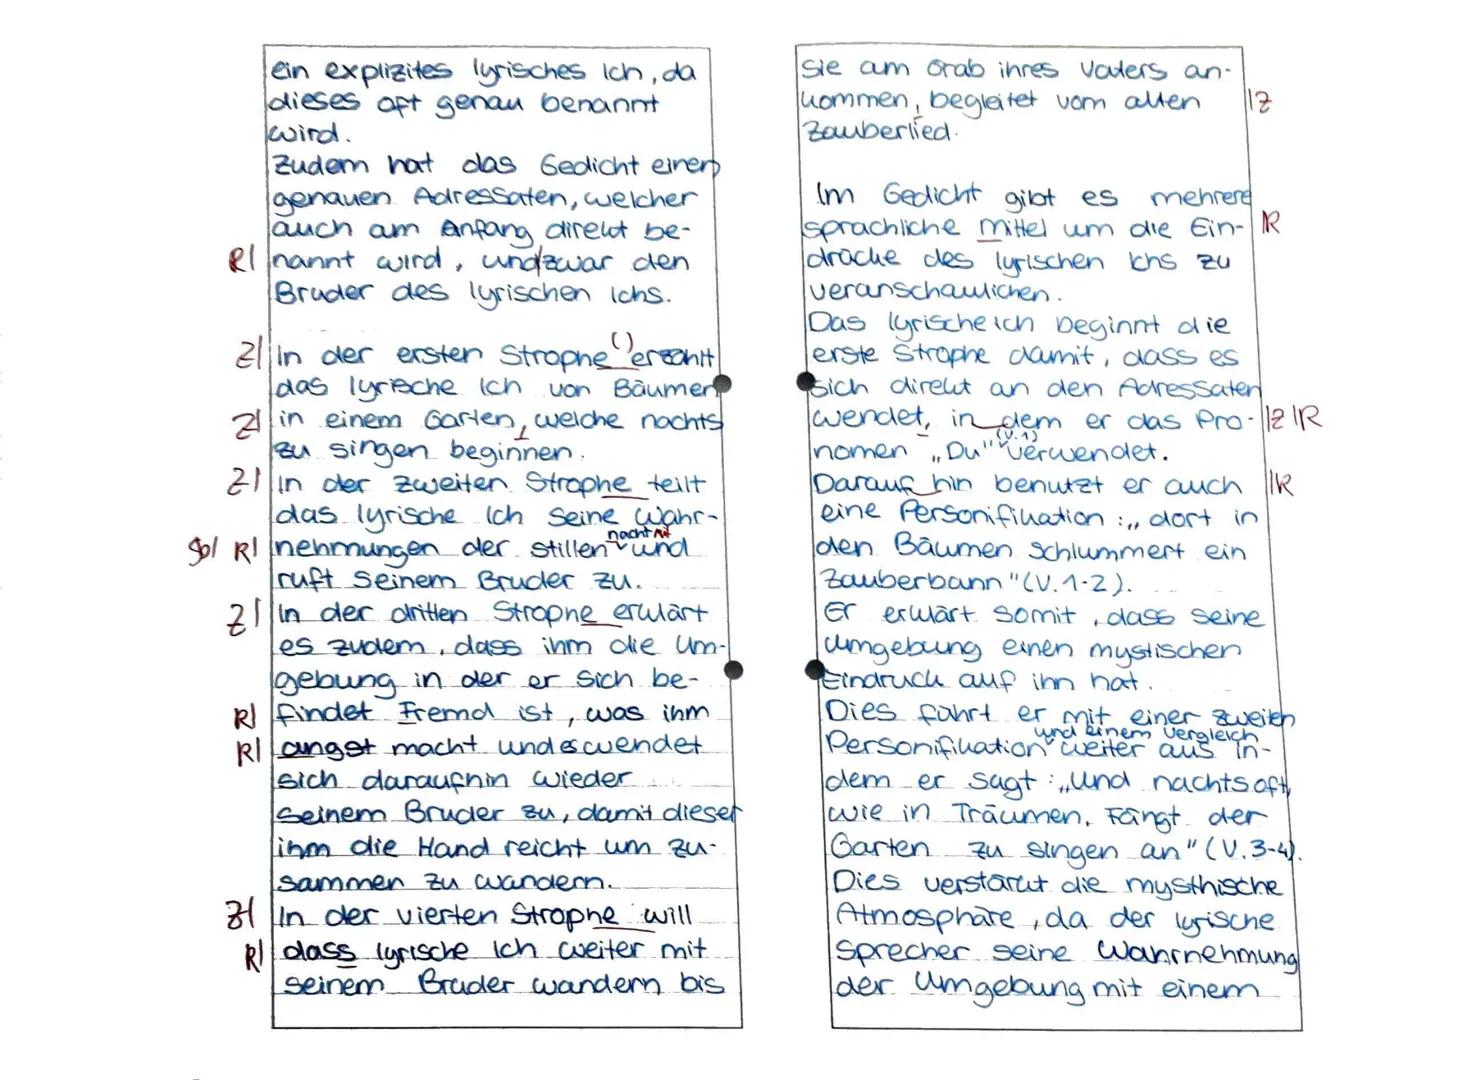 ein explizites lyrisches Ich, da
dieses oft genau benannt
wird.
Zudem hat das Gedicht einen
genauen Adressaten, welcher
auch am Anfang direkt be-
R| nannt wird, undzwar den
Bruder des lyrischen Ichs.
Z| In der ersten Strophe () erzählt
das lyrische Ich von Bäumen
Z| in einem Garten, welche nachts
zu singen beginnen.
Z| In der zweiten Strophe teilt
das lyrische Ich seine Wahr-
nacht mit
Sb| R| nehmungen der stillen und
ruft seinem Bruder zu.
Z| In der dritten Strophe erklärt
es zudem, dass ihm die Um-
gebung in der er sich be-
R| findet Fremd ist, was ihm
R| angst macht und es wendet
sich daraufhin wieder
seinem Bruder zu, damit dieser
ihm die Hand reicht um zu-
sammen zu wandern.
Z| In der vierten Strophe will
R| dass lyrische Ich weiter mit
seinem Bruder wandern bis
sie am Grab ihres Vaters an-
kommen, begleitet vom alten |Z
Zauberlied.
Im Gedicht gibt es mehrere
sprachliche Mittel um die Ein- |R
drücke des lyrischen Ichs zu
veranschaulichen.
Das lyrische ich beginnt die
erste Strophe damit, dass es
sich direkt an den Adressaten
wendet, in dem er das Pro- |Z |R
(V.1)
nomen „Du" verwendet.
Darauf hin benutzt er auch |R
eine Personifikation: „dort in
den Bäumen schlummert ein
Zauberbann" (V.1-2).
Er erklärt somit, dass seine
Umgebung einen mystischen
Eindruck auf ihn hat.
Dies führt er mit einer zweiten
und einem Vergleich
Personifikation weiter aus in-
dem er sagt: „Und nachts oft,
wie in Träumen, Fängt der
Garten zu singen an" (V.3-4).
Dies verstärkt die mysthische
Atmosphäre, da der lyrische
Sprecher seine Wahrnehmung
der Umgebung mit einem